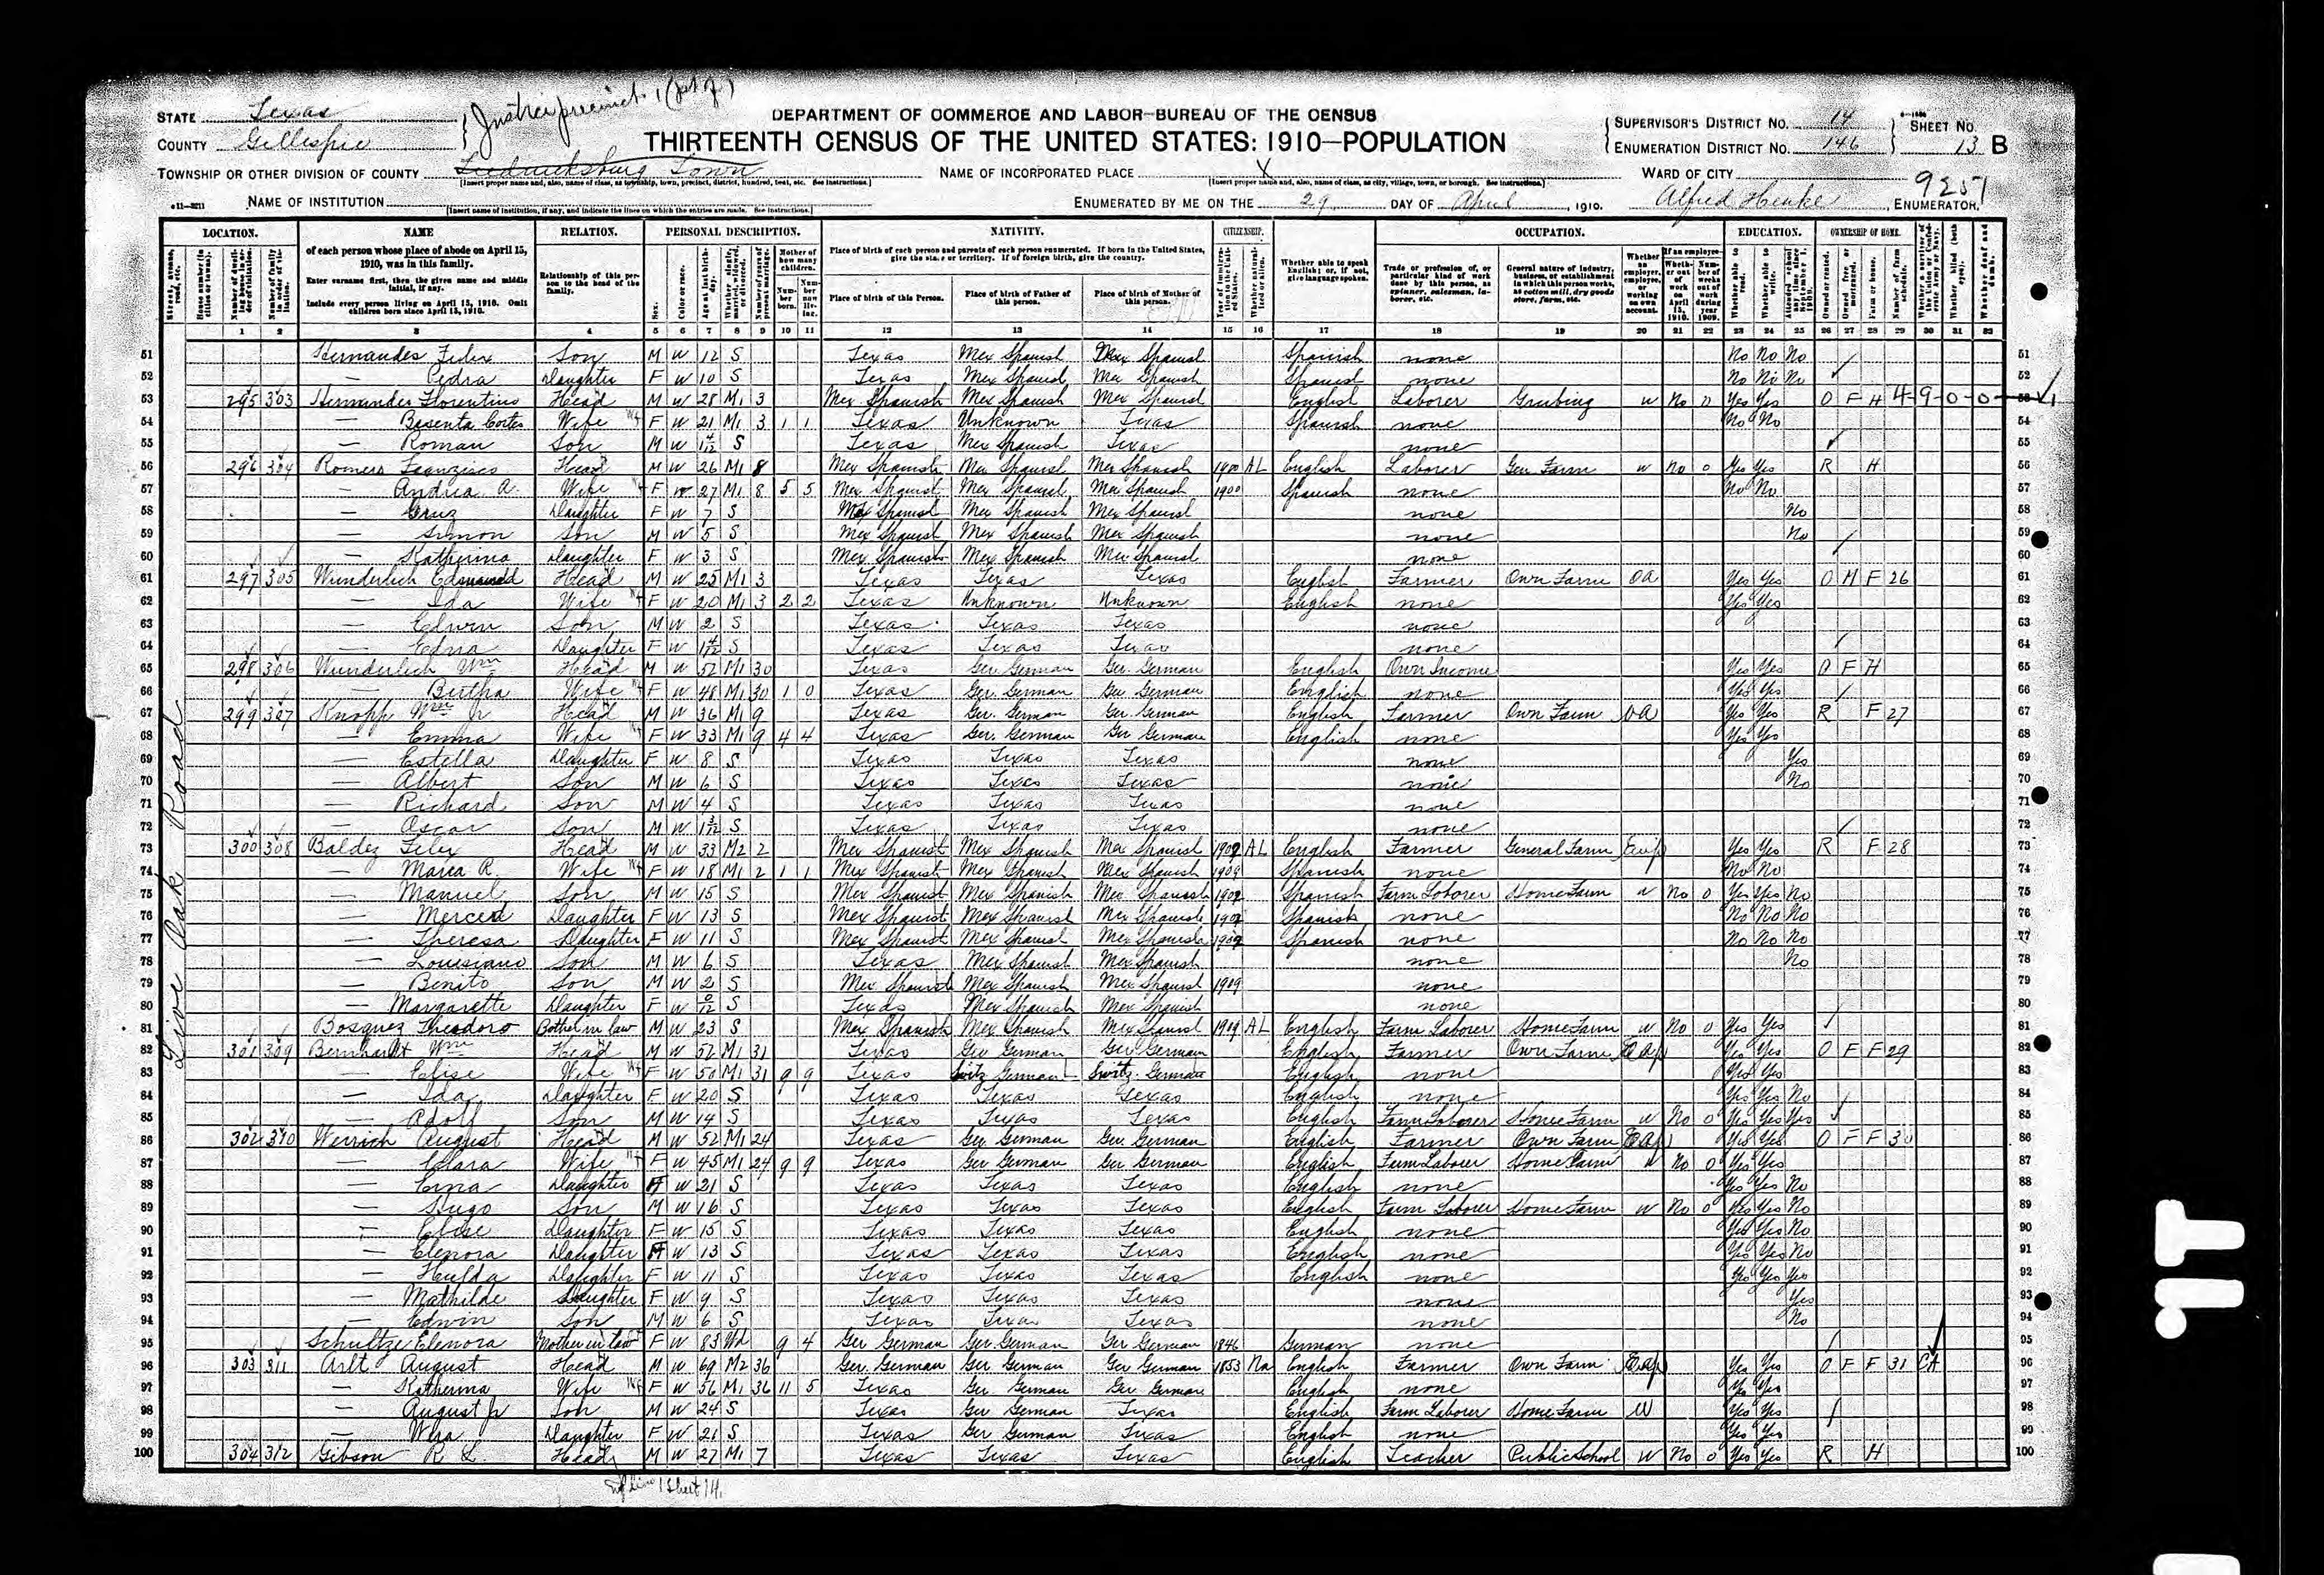 STATE Texas
COUNTY Gillespie
Justice precinct 1 (part of)
DEPARTMENT OF COMMERCE AND LABOR—BUREAU OF THE CENSUS
THIRTEENTH CENSUS OF THE UNITED STATES: 1910—POPULATION
SUPERVISOR'S DISTRICT NO. 14
ENUMERATION DISTRICT NO. 146
SHEET NO. 13 B
TOWNSHIP OR OTHER DIVISION OF COUNTY Fredricksburg Town
NAME OF INCORPORATED PLACE X
WARD OF CITY
9251
NAME OF INSTITUTION
ENUMERATED BY ME ON THE 29 DAY OF April, 1910. Alfred Henke, ENUMERATOR.
LOCATION. NAME RELATION. PERSONAL DESCRIPTION. NATIVITY. CITIZENSHIP. OCCUPATION. EDUCATION. OWNERSHIP OF HOME.
1 2 3 4 5 6 7 8 9 10 11 12 13 14 15 16 17 18 19 20 21 22 23 24 25 26 27 28 29 30 31 32
Live Oak Road
51 Hernandes Felix Son M W 12 S Texas Mex Spanish Mex Spanish Spanish none No No No 51
52 — Pedra Daughter F W 10 S Texas Mex Spanish Mex Spanish Spanish none No No No 52
53 295 303 Hernandes Florentino Head M W 28 M1 3 Mex Spanish Mex Spanish Mex Spanish English Laborer Grubing W No 0 Yes Yes O F H 4-9-0-0 53
54 — Basenta Cortes Wife F W 21 M1 3 1 1 Texas Unknown Texas Spanish none No No 54
55 — Roman Son M W 1 4/12 S Texas Mex Spanish Texas none 55
56 296 304 Romero Franzisco Head M W 26 M1 8 Mex Spanish Mex Spanish Mex Spanish 1900 AL English Laborer Gen Farm W No 0 Yes Yes R H 56
57 — Andrea A. Wife F W 27 M1 8 5 5 Mex Spanish Mex Spanish Mex Spanish 1900 Spanish none No No 57
58 — Cruz Daughter F W 7 S Mex Spanish Mex Spanish Mex Spanish none No 58
59 — Simon Son M W 5 S Mex Spanish Mex Spanish Mex Spanish none No 59
60 — Katherina Daughter F W 3 S Mex Spanish Mex Spanish Mex Spanish none 60
61 297 305 Wunderlich Edmund Head M W 25 M1 3 Texas Texas Texas English Farmer Own Farm OA Yes Yes O M F 26 61
62 — Ida Wife F W 20 M1 3 2 2 Texas Unknown Unknown English none Yes Yes 62
63 — Edwin Son M W 2 S Texas Texas Texas none 63
64 — Edna Daughter F W 1 4/12 S Texas Texas Texas none 64
65 298 306 Wunderlich Wm Head M W 52 M1 30 Texas Ger. German Ger. German English Own Income Yes Yes O F H 65
66 — Bertha Wife F W 48 M1 30 1 0 Texas Ger. German Ger German English none Yes Yes 66
67 299 307 Knopp Wm Jr Head M W 36 M1 9 Texas Ger. German Ger. German English Farmer Own Farm OA Yes Yes R F 27 67
68 — Emma Wife F W 33 M1 9 4 4 Texas Ger. German Ger German English none Yes Yes 68
69 — Estella Daughter F W 8 S Texas Texas Texas none Yes 69
70 — Albert Son M W 6 S Texas Texas Texas none No 70
71 — Richard Son M W 4 S Texas Texas Texas none 71
72 — Oscar Son M W 1 3/12 S Texas Texas Texas none 72
73 300 308 Baldez Felix Head M W 33 M2 2 Mex Spanish Mex Spanish Mex Spanish 1909 AL English Farmer General Farm Emp Yes Yes R F 28 73
74 — Maria R. Wife F W 18 M1 2 1 1 Mex Spanish Mex Spanish Mex Spanish 1909 Spanish none No No 74
75 — Manuel Son M W 15 S Mex Spanish Mex Spanish Mex Spanish 1909 Spanish Farm Laborer Home Farm W No 0 Yes Yes No 75
76 — Merced Daughter F W 13 S Mex Spanish Mex Spanish Mex Spanish 1909 Spanish none No No No 76
77 — Theresa Daughter F W 11 S Mex Spanish Mex Spanish Mex Spanish 1909 Spanish none No No No 77
78 — Louisiano Son M W 6 S Texas Mex Spanish Mex Spanish none No 78
79 — Benito Son M W 2 S Mex Spanish Mex Spanish Mex Spanish 1909 none 79
80 — Margarette Daughter F W 0/12 S Texas Mex Spanish Mex Spanish none 80
81 Bosquez Theodoro Bothel in law M W 23 S Mex Spanish Mex Spanish Mex Spanish 1909 AL English Farm Laborer Home Farm W No 0 Yes Yes 81
82 301 309 Bernhardt Wm Head M W 52 M1 31 Texas Ger German Ger German English Farmer Own Farm Emp Yes Yes O F F 29 82
83 — Elise Wife F W 50 M1 31 9 9 Texas Switz German Switz. German English none Yes Yes 83
84 — Ida Daughter F W 20 S Texas Texas Texas English none Yes Yes No 84
85 — Adolf Son M W 14 S Texas Texas Texas English Farm Laborer Home Farm W No 0 Yes Yes Yes 85
86 302 310 Weirich August Head M W 52 M1 24 Texas Ger. German Ger. German English Farmer Own Farm Emp Yes Yes O F F 30 86
87 — Clara Wife F W 45 M1 24 9 9 Texas Ger German Ger German English Farm Laborer Home Farm W No 0 Yes Yes 87
88 — Erna Daughter F W 21 S Texas Texas Texas English none Yes Yes No 88
89 — Hugo Son M W 16 S Texas Texas Texas English Farm Laborer Home Farm W No 0 Yes Yes No 89
90 — Elise Daughter F W 15 S Texas Texas Texas English none Yes Yes No 90
91 — Elenora Daughter F W 13 S Texas Texas Texas English none Yes Yes No 91
92 — Hulda Daughter F W 11 S Texas Texas Texas English none Yes Yes Yes 92
93 — Mathilde Daughter F W 9 S Texas Texas Texas none Yes 93
94 — Edwin Son M W 6 S Texas Texas Texas none No 94
95 Schultze Elenora Mother in law F W 83 Wd 9 4 Ger German Ger German Ger German 1846 German none 95
96 303 311 Arlt August Head M W 69 M2 36 Ger. German Ger German Ger German 1853 Na English Farmer Own Farm Emp Yes Yes O F F 31 CA 96
97 — Katherina Wife F W 56 M1 36 11 5 Texas Ger. German Ger German English none Yes Yes 97
98 — August Jr Son M W 24 S Texas Ger German Texas English Farm Laborer Home Farm W Yes Yes 98
99 — Daughter F W 21 S Texas Ger German Texas English none Yes Yes 99
100 304 312 Gibson R L Head M W 27 M1 7 Texas Texas Texas English Teacher Public School W No 0 Yes Yes R H 100